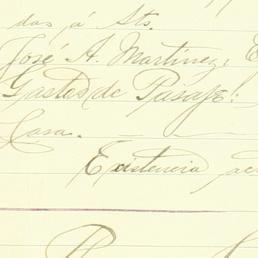 das á Sts.
José A. Martinez, E
Gastos de Pasaje:
Casa. —
Existencia act